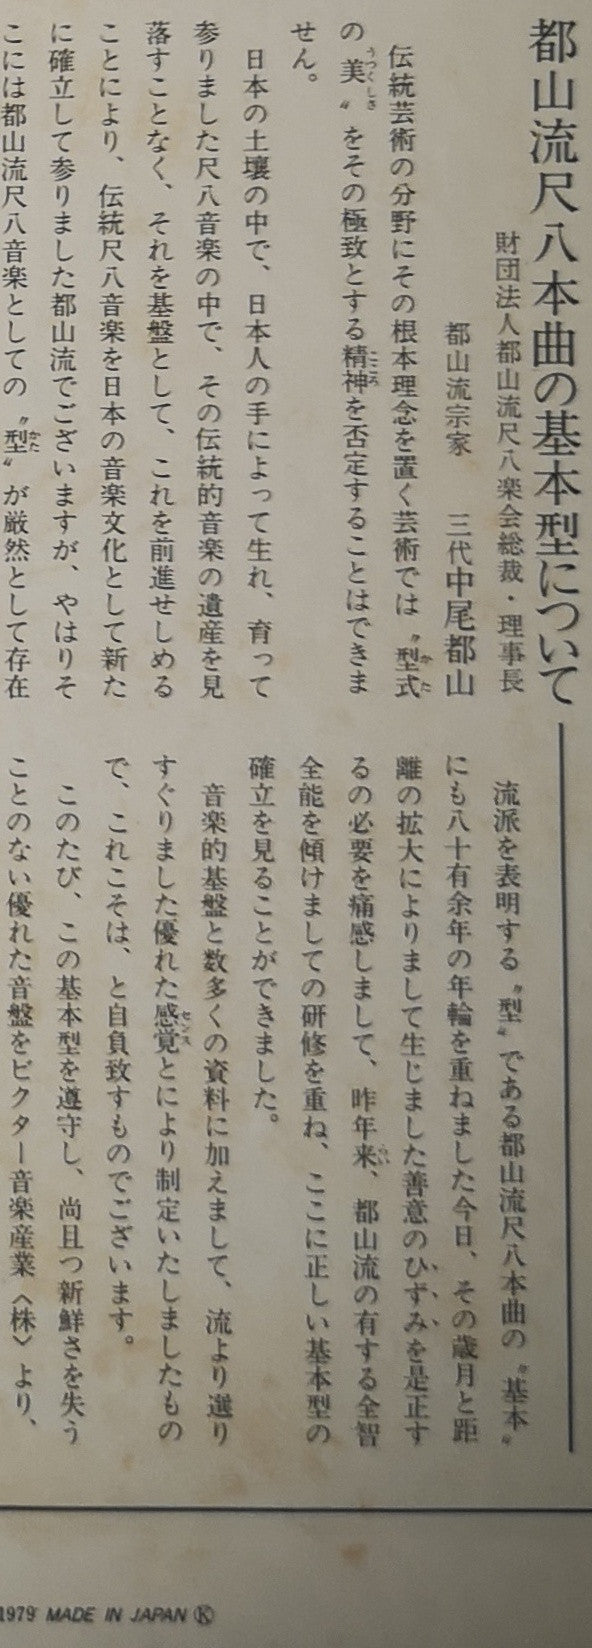 都山流尺八本曲の基本型について
財団法人都山流尺八楽会総裁・理事長
都山流宗家　三代中尾都山
伝統芸術の分野にその根本理念を置く芸術では〝型式
の〝美〟をその極致とする精神を否定することはできま
せん。
日本の土壌の中で、日本人の手によって生れ、育って
参りました尺八音楽の中で、その伝統的音楽の遺産を見
落すことなく、それを基盤として、これを前進せしめる
ことにより、伝統尺八音楽を日本の音楽文化として新た
に確立して参りました都山流でございますが、やはりそ
こには都山流尺八音楽としての〝型〟が厳然として存在
流派を表明する〝型〟である都山流尺八本曲の〝基本〟
にも八十有余年の年輪を重ねました今日、その歳月と距
離の拡大によりまして生じました善意のひずみを是正す
るの必要を痛感しまして、昨年来、都山流の有する全智
全能を傾けましての研修を重ね、ここに正しい基本型の
確立を見ることができました。
音楽的基盤と数多くの資料に加えまして、流より選り
すぐりました優れた感覚とにより制定いたしましたもの
で、これこそは、と自負致すものでございます。
このたび、この基本型を遵守し、尚且つ新鮮さを失う
ことのない優れた音盤をビクター音楽産業〈株〉より、
1979 MADE IN JAPAN Ⓚ